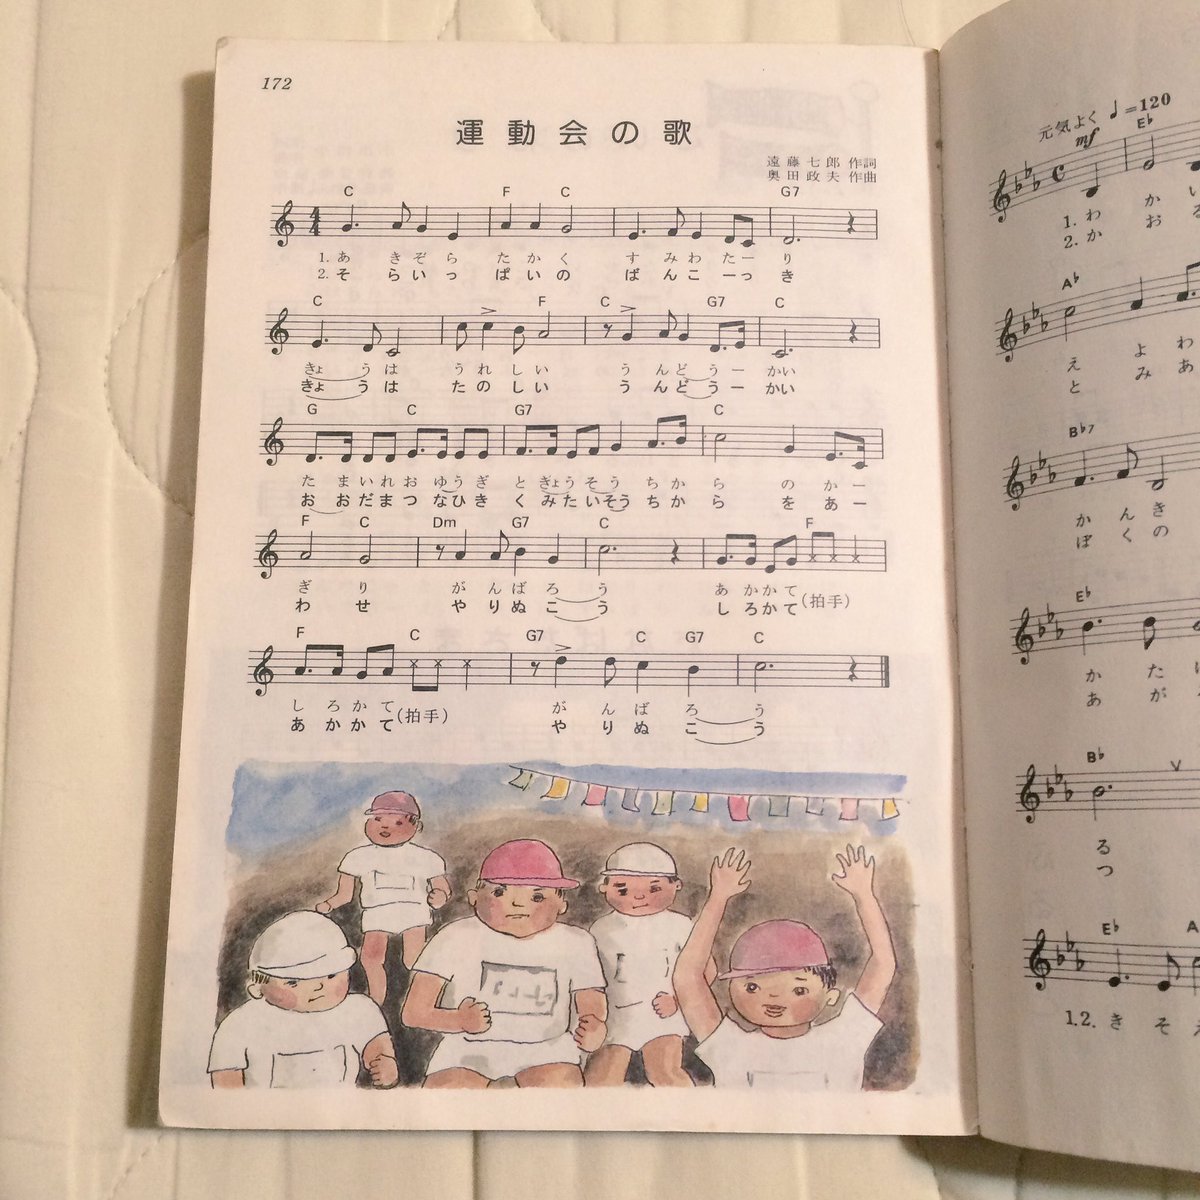 172
運動会の歌
遠藤七郎 作詞
奥田政夫 作曲
C F C G7
1. あ き ぞ ら た か く す み わ た ー り
2. そ ら い っ ぱ い の ば ん こ ー っ き
C F C G7 C
きょ う は う れ し い う ん ど う ー かい
きょ う は た の し い う ん ど う ー かい
G C G7 C
た ま い れ お ゆ う ぎ と きょ う そ う ち か ら の か ー
お お だ ま つ な ひ き く み た い そ う ち か ら を あ ー
F C Dm G7 C F
ぎ り が ん ば ろ う あ か か て (拍手)
わ せ や り ぬ こ う し ろ か て
F C G7 C G7 C
し ろ か て (拍手) が ん ば ろ う
あ か か て や り ぬ こ う
元気よく ♩=120
mf E♭
1. わ か い
2. か お る
A♭
え よ わ
と み あ
B♭7
か ん き
ぼ く の
E♭
か た
あ が
B♭
る
つ
E♭ A
1.2. き そ え